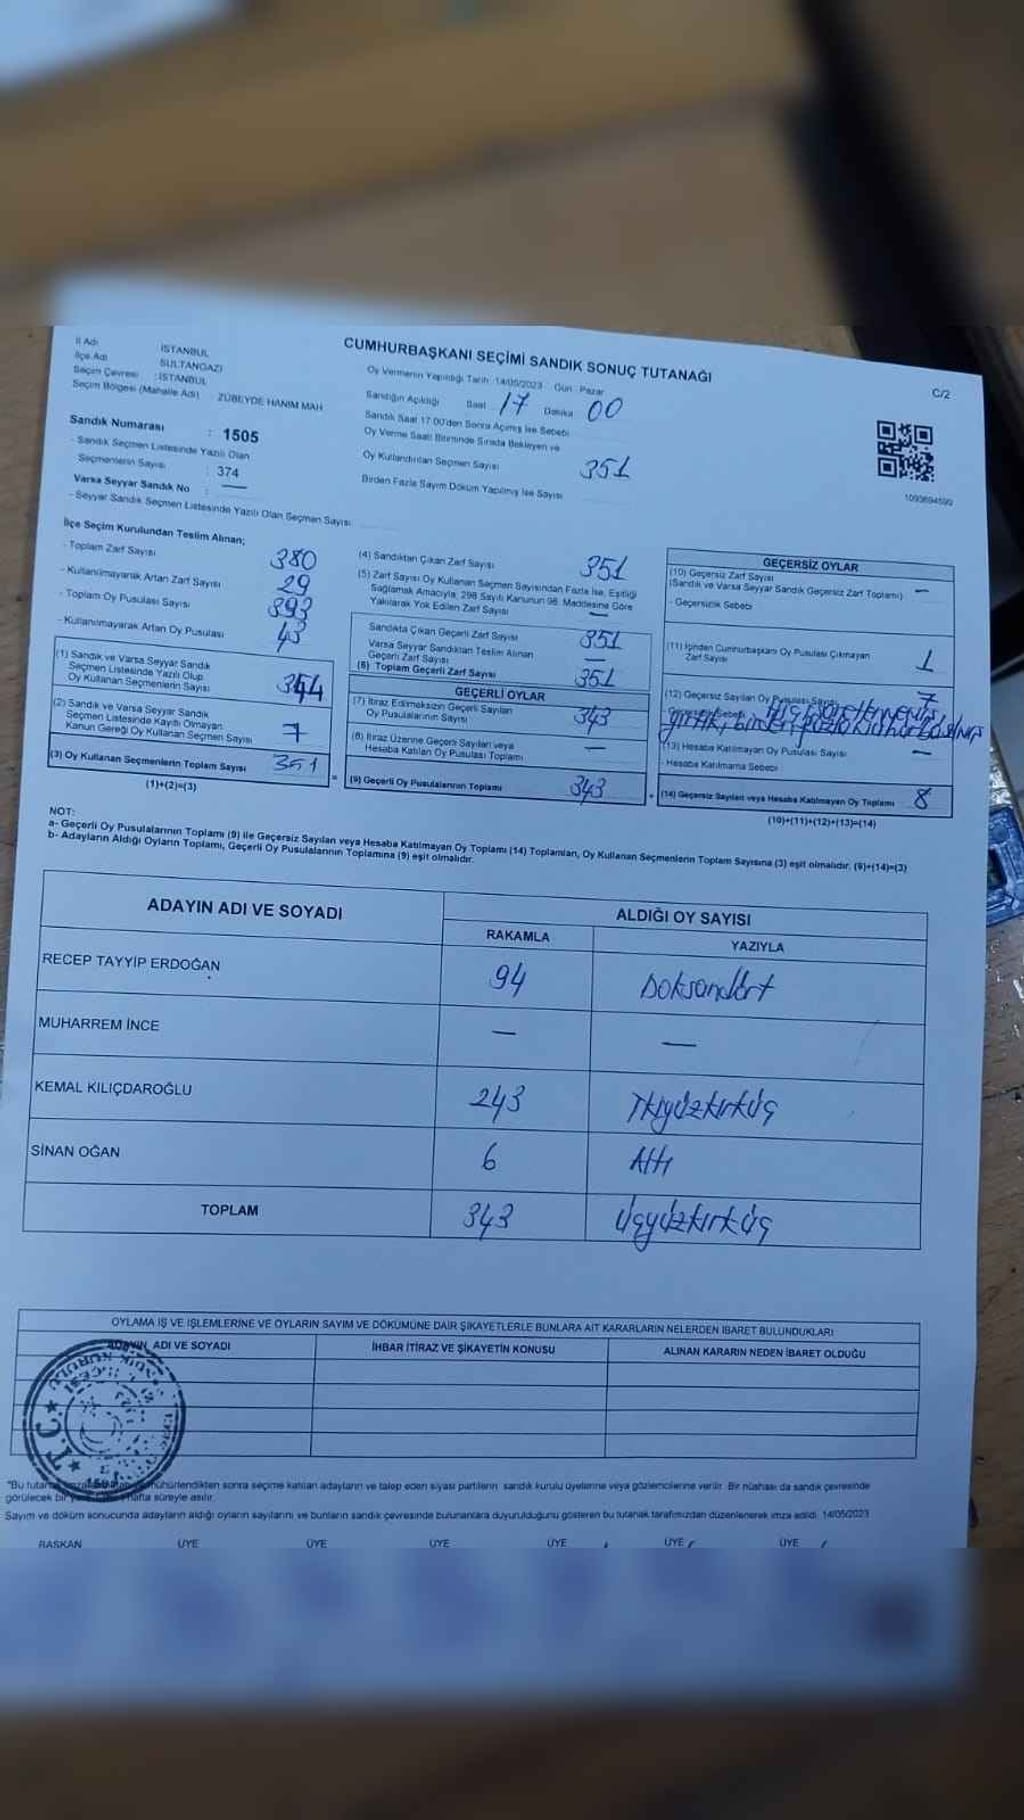 CUMHURBAŞKANI SEÇİMİ SANDIK SONUÇ TUTANAĞI
C/2
İl Adı : İSTANBUL
İlçe Adı : SULTANGAZİ
Seçim Çevresi : İSTANBUL
Seçim Bölgesi (Mahalle Adı) : ZÜBEYDE HANIM MAH
Sandık Numarası : 1505
- Sandık Seçmen Listesinde Yazılı Olan
Seçmenlerin Sayısı : 374
Varsa Seyyar Sandık No : —
- Seyyar Sandık Seçmen Listesinde Yazılı Olan Seçmen Sayısı
Oy Vermenin Yapıldığı Tarih : 14/05/2023 Gün : Pazar
Sandığın Açıldığı Saat 17 Dakika 00
Sandık Saat 17:00'den Sonra Açılmış İse Sebebi
Oy Verme Saati Bitiminde Sırada Bekleyen ve
Oy Kullandırılan Seçmen Sayısı 351
Birden Fazla Sayım Döküm Yapılmış İse Sayısı
1093694599
İlçe Seçim Kurulundan Teslim Alınan;
- Toplam Zarf Sayısı 380
- Kullanılmayarak Artan Zarf Sayısı 29
- Toplam Oy Pusulası Sayısı 393
- Kullanılmayarak Artan Oy Pusulası 43
(1) Sandık ve Varsa Seyyar Sandık
Seçmen Listesinde Yazılı Olup
Oy Kullanan Seçmenlerin Sayısı 344
(2) Sandık ve Varsa Seyyar Sandık
Seçmen Listesinde Kayıtlı Olmayan
Kanun Gereği Oy Kullanan Seçmen Sayısı 7
(3) Oy Kullanan Seçmenlerin Toplam Sayısı 351
(1)+(2)=(3)
(4) Sandıktan Çıkan Zarf Sayısı 351
(5) Zarf Sayısı Oy Kullanan Seçmen Sayısından Fazla İse, Eşitliği
Sağlamak Amacıyla, 298 Sayılı Kanunun 98. Maddesine Göre
Yakılarak Yok Edilen Zarf Sayısı —
Sandıkta Çıkan Geçerli Zarf Sayısı 351
Varsa Seyyar Sandıktan Teslim Alınan
Geçerli Zarf Sayısı —
(6) Toplam Geçerli Zarf Sayısı 351
GEÇERLİ OYLAR
(7) İtiraz Edilmeksizin Geçerli Sayılan
Oy Pusulalarının Sayısı 343
(8) İtiraz Üzerine Geçerli Sayılan veya
Hesaba Katılan Oy Pusulası Toplamı —
= (9) Geçerli Oy Pusulalarının Toplamı 343
GEÇERSİZ OYLAR
(10) Geçersiz Zarf Sayısı
(Sandık ve Varsa Seyyar Sandık Geçersiz Zarf Toplamı) —
- Geçersizlik Sebebi
(11) İçinden Cumhurbaşkanı Oy Pusulası Çıkmayan
Zarf Sayısı 1
(12) Geçersiz Sayılan Oy Pusulası Sayısı 7
(13) Hesaba Katılmayan Oy Pusulası Sayısı —
- Hesaba Katılmama Sebebi
+ (14) Geçersiz Sayılan veya Hesaba Katılmayan Oy Toplamı 8
(10)+(11)+(12)+(13)=(14)
NOT:
a- Geçerli Oy Pusulalarının Toplamı (9) ile Geçersiz Sayılan veya Hesaba Katılmayan Oy Toplamı (14) Toplamları, Oy Kullanan Seçmenlerin Toplam Sayısına (3) eşit olmalıdır. (9)+(14)=(3)
b- Adayların Aldığı Oyların Toplamı, Geçerli Oy Pusulalarının Toplamına (9) eşit olmalıdır.
ADAYIN ADI VE SOYADI
ALDIĞI OY SAYISI
RAKAMLA YAZIYLA
RECEP TAYYİP ERDOĞAN 94 Doksandört
MUHARREM İNCE — —
KEMAL KILIÇDAROĞLU 243 İkiyüzkırküç
SİNAN OĞAN 6 Altı
TOPLAM 343 Üçyüzkırküç
OYLAMA İŞ VE İŞLEMLERİNE VE OYLARIN SAYIM VE DÖKÜMÜNE DAİR ŞİKAYETLERLE BUNLARA AİT KARARLARIN NELERDEN İBARET BULUNDUKLARI
ADAYIN ADI VE SOYADI İHBAR İTİRAZ VE ŞİKAYETİN KONUSU ALINAN KARARIN NEDEN İBARET OLDUĞU
T.C.
"Bu tutanak mühürlendikten sonra seçime katılan adayların ve talep eden siyasi partilerin sandık kurulu üyelerine veya gözlemcilerine verilir. Bir nüshası da sandık çevresinde
görülecek bir hafta süreyle asılır.
Sayım ve döküm sonucunda adayların aldığı oyların sayılarını ve bunların sandık çevresinde bulunanlara duyurulduğunu gösteren bu tutanak tarafımızdan düzenlenerek imza edildi. 14/05/2023
BAŞKAN ÜYE ÜYE ÜYE ÜYE ÜYE ÜYE